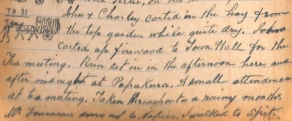 TH 31
John & Charley carted in the hay from
the top garden which's quite dry. John
carted up firewood to Town Hall for the
Tea meeting. Rain set in in the afternoon here and
after midnight at Papakura. A small attendance
at tea meeting. Taken throughout a rainy month.
Mr walked to